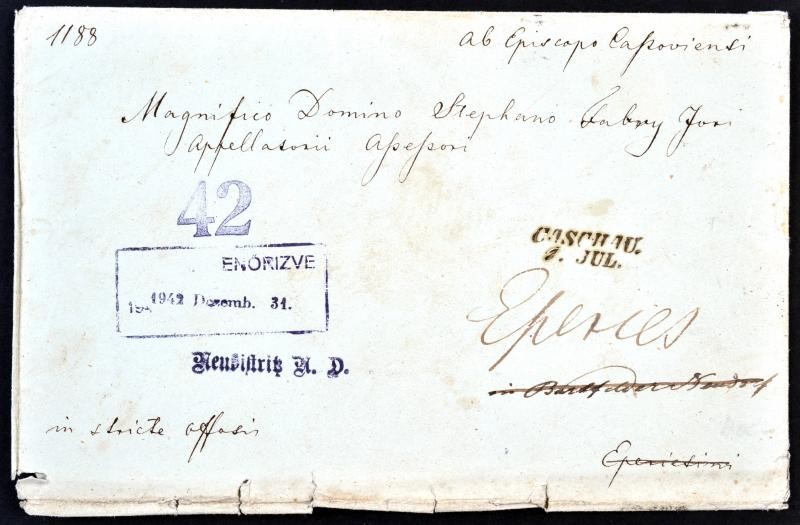 1188
ab Episcopo Cassoviensi
Magnifico Domino Stephano Fabry Fori
Appellatorii Assessori
42
CASCHAU.
JUL.
ENŐRIZVE
194
1942 Dezemb. 31.
Eperies
Neubistritz N. D.
in
in stricte offosis
Eperiesini